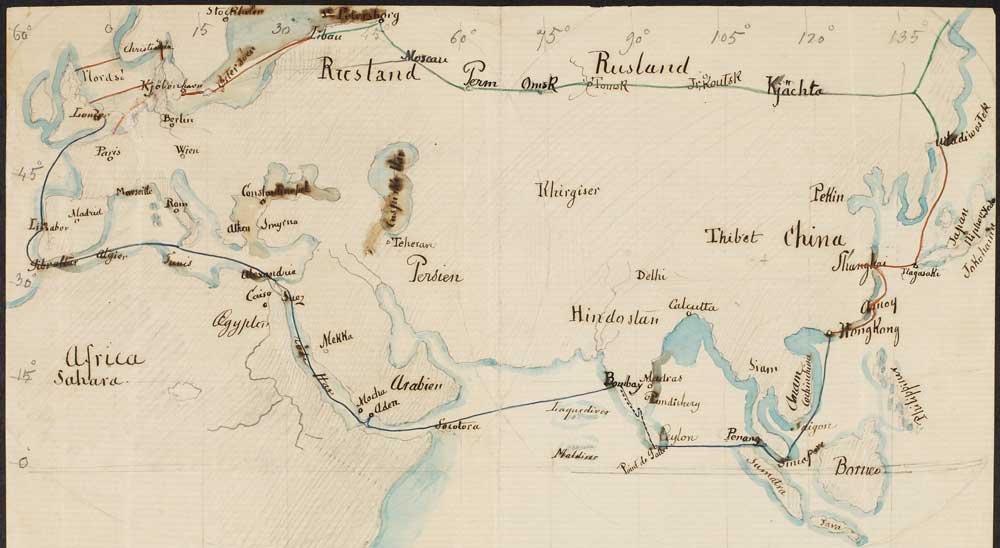 60°
0
15
30
45
60°
75
90°
105
120°
135
Stockholm
St Petersborg
Libau
Christiania
Moscau
Rusland
Rusland
Nordsö
Perm
Omsk
Tomsk
Irkoutsk
Kjächta
Kjöbenhavn
London
Berlin
Wladiwostok
Paris
Wien
45°
Marseille
Constantinopel
Khirgiser
Pekin
Madrid
Rom
Lissabon
Smyrna
Athen
Japan
Teheran
Thibet
China
Gibraltar
Algier
Tunis
Alexandria
Persien
Shanghai
Nagasaki
30°
Delhi
Cairo
Suez
Calcutta
Amoy
Ægypten
Hindostan
HongKong
Mekka
Africa
Siam
Anam
Cochinchina
15°
Sahara
Arabien
Bombay
Madras
Pondichery
Philippiner
Mocha
Aden
Laquediver
Socotora
Ceylon
Penang
Saigon
0°
Maldiver
Point de Galle
Singapore
Borneo
Sumatra
Java